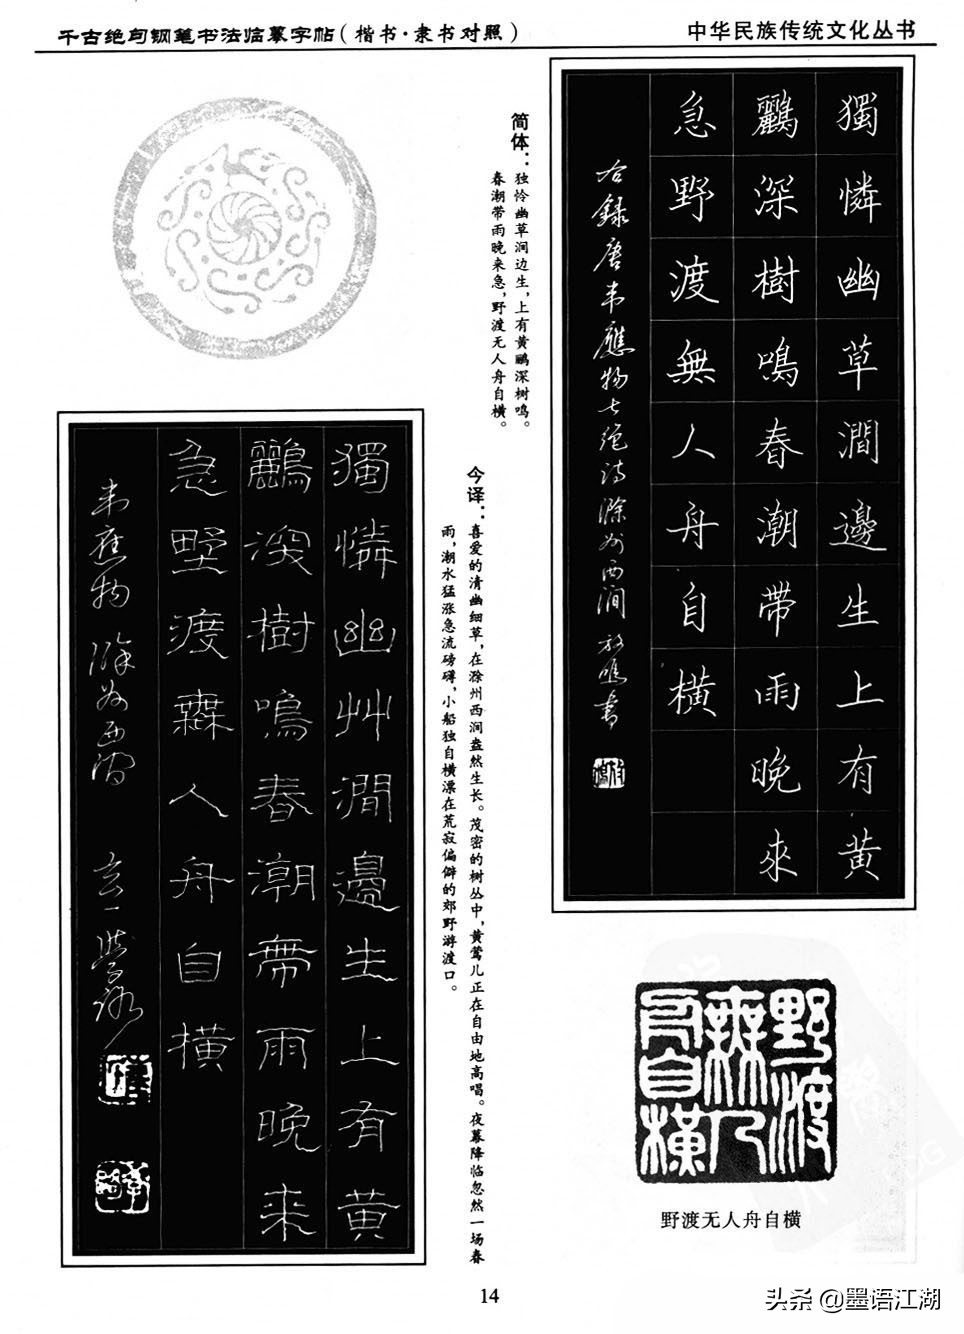 千古绝句钢笔书法临摹字帖（楷书·隶书对照）
中华民族传统文化丛书
獨憐幽草澗邊生上有黃
鸝深樹鳴春潮帶雨晚來
急野渡無人舟自橫
右錄唐韦應物七绝诗滁州西澗
简体：独怜幽草涧边生，上有黄鹂深树鸣。
春潮带雨晚来急，野渡无人舟自横。
今译：喜爱的清幽细草，在滁州西涧盎然生长。茂密的树丛中，黄莺儿正在自由地高唱。夜幕降临忽然一场春
雨，潮水猛涨急流磅礴，小船独自横漂在荒寂偏僻的郊野游渡口。
獨憐幽艸澗邊生上有黃
鸝深樹鳴春潮帶雨晚来
急墅渡霖人舟自橫
韦應物滁州西澗
野渡無人舟自橫
野渡无人舟自横
14
头条 @墨语江湖